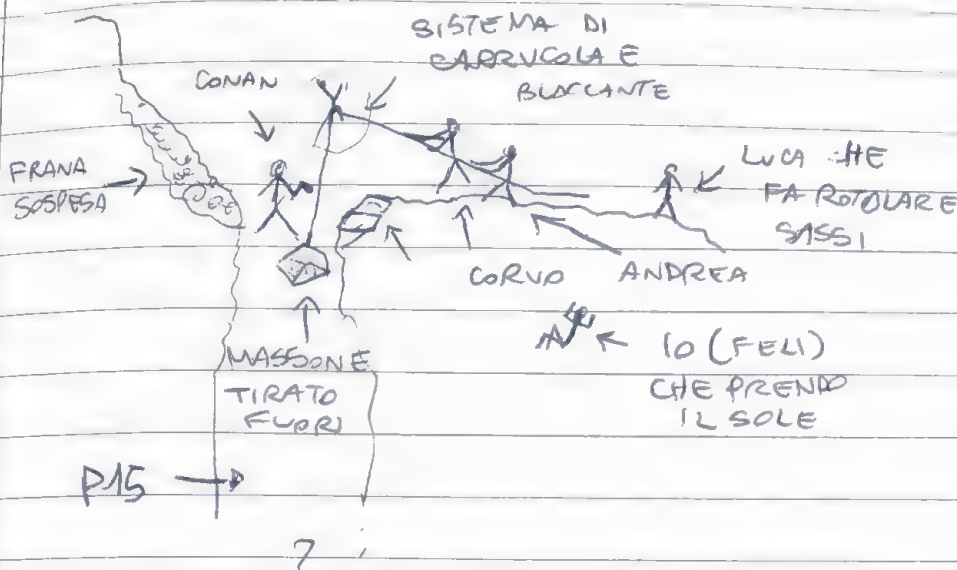 SISTEMA DI
CARRUCOLA E
BLOCCANTE
CONAN
FRANA
SOSPESA
LUCA CHE
FA ROTOLARE
SASSI
CORVO
ANDREA
MASSONE
TIRATO
FUORI
IO (FELI)
CHE PRENDO
IL SOLE
P15
?